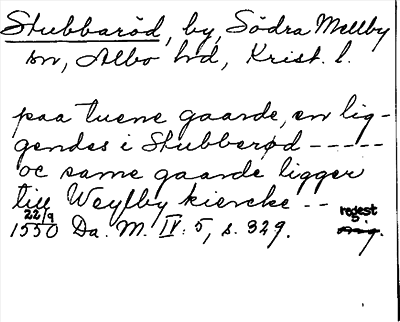 Stubbaröd, by, Södra Mellby
sn, Albo hd, Krist. l.
paa tuene gaarde, en lig-
gendes i Stubberød -----
oc same gaarde ligger
till Weyfby kiercke --
22/9
1550 Da. M. IV: 5, s. 329.
regest